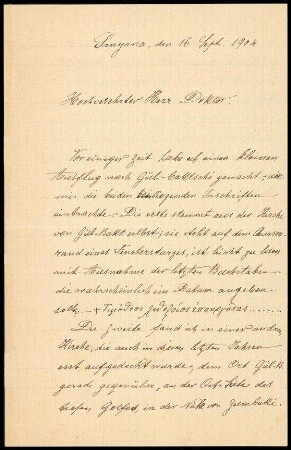 Smyrna, den 16 Sept. 1904
Hochverehrter Herr Doktor.
Vor einiger Zeit habe ich einen kleinen
Ausflug nach Gül-baktsché gemacht, der
mir die beiden Inschriften
einbrachte. Die erste stammt aus der Kirche
von Gül-Bakt. selbst; sie steht auf dem Aussen-
rand eines Fenstersturzes, ist leicht zu lesen
mit Ausnahme der letzten Buchstaben
die wahrscheinlich ein Datum angeben
sollen. – +
Die zweite fand ich in einer andern
Kirche, die auch in diesen letzten Jahren
erst aufgedeckt wurde, dem Ort Gül-B.
gerade gegenüber, an der Ost-Seite des
Golfes, in der Nähe von